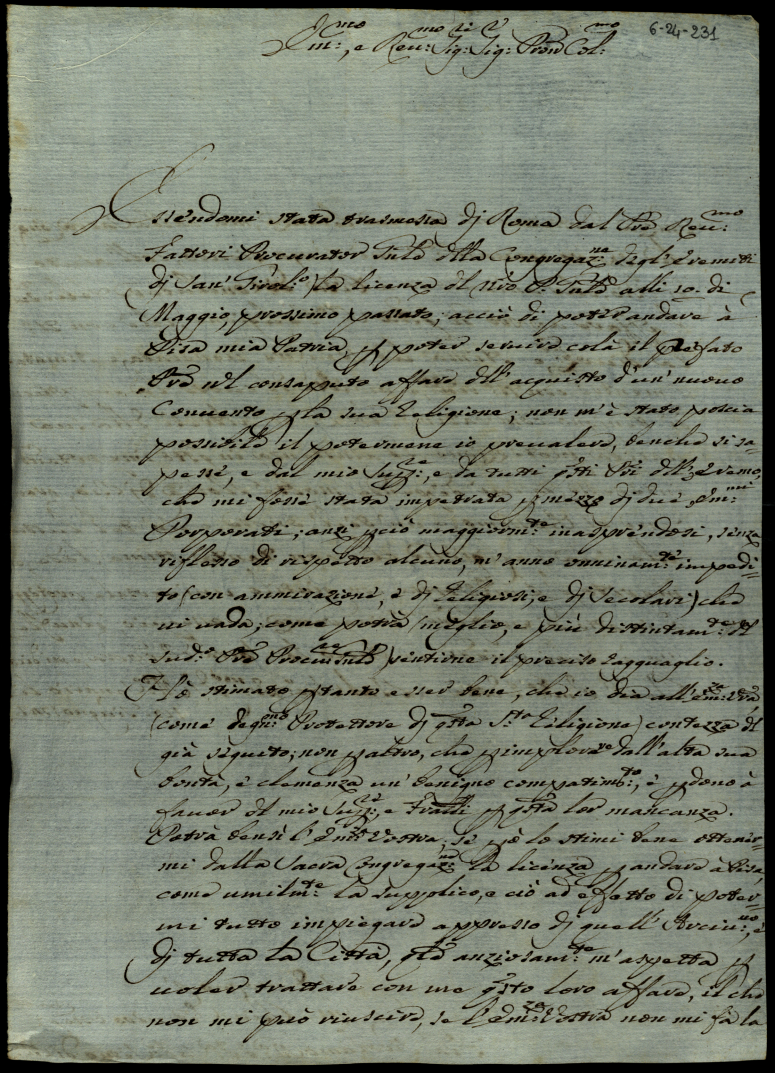 6-24-231
Em:mo, e Reu:mo Sig:re Sig: Pron Col:mo
Essendomi stata trasmessa dj Roma dal Pre Reu:mo
Fattori Procurator Gnle della Congregaz:ne degl' Eremiti
dj San' Girol:o la licenza del nro P. Gnle alli 10. di
Maggio, prossimo passato; acciò di poter andare à
Pisa mia Patria, p poter seruire colà il prefato
Pre nel consaputo affare dell' acquisto d' un' nuouo
Conuento p la sua Religione; non m'è stato poscia
possibile il potermene io preualere, benche si sa-
pesse, e dal mio Sup:re, e da tutti qsti Pri dell' Eremo,
che mi fosse stata impetrata p mezzo dj due Em:mi
Porporati; anzi p ciò maggiorm:te inasprendosi, senza
riflesso di rispetto alcuno, m' anno onninam:te impedi-
to (con ammirazione, e dj Religiosi, e dj Secolari) che
ui uada; come potrà meglio, e più distintam:te dl
sud:o Pre Procur Gnle sentirne il preciso ragguaglio.
Hò stimato p tanto esser bene, che io dia all' Em:za Vra
(come degn:mo Protettore dj qsta S:ta Religione) contezza dl
già seguito; non p altro, che p implorare dall' alta sua
bontà, e clemenza un' benigno compatim:to, e pdono à
fauor dl mio Sup:re, e Fratelli p qsta lor mancanza.
Potrà bensì l' Em:za Vostra, se p ò lo stimi bene ottener-
mi dalla Sacra Congregaz:ne la licenza p andare à Pisa,
come umilm:te la supplico, e ciò ad effetto di poter-
mi tutto impiegare appresso dj quell' Arciu:uo, e
dj tutta la Città, qle anziosam:te m' aspetta p
uoler trattare con me qsto loro affare, il che
non mi può riuscire, se l' Em:za Vostra non mi fà la